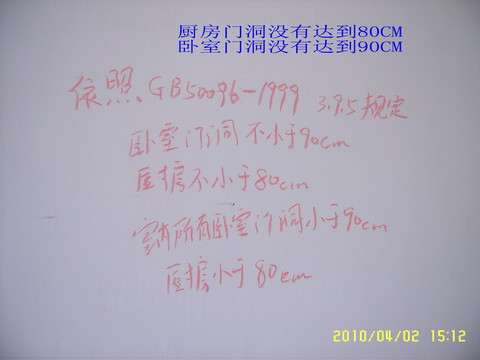 厨房门洞没有达到80CM
卧室门洞没有达到90CM
依照 GB50096-1999 3.9.5 规定
卧室门洞不小于90cm
厨房不小于80cm
室内所有卧室门洞小于90cm
厨房小于80cm
2010/04/02 15:12